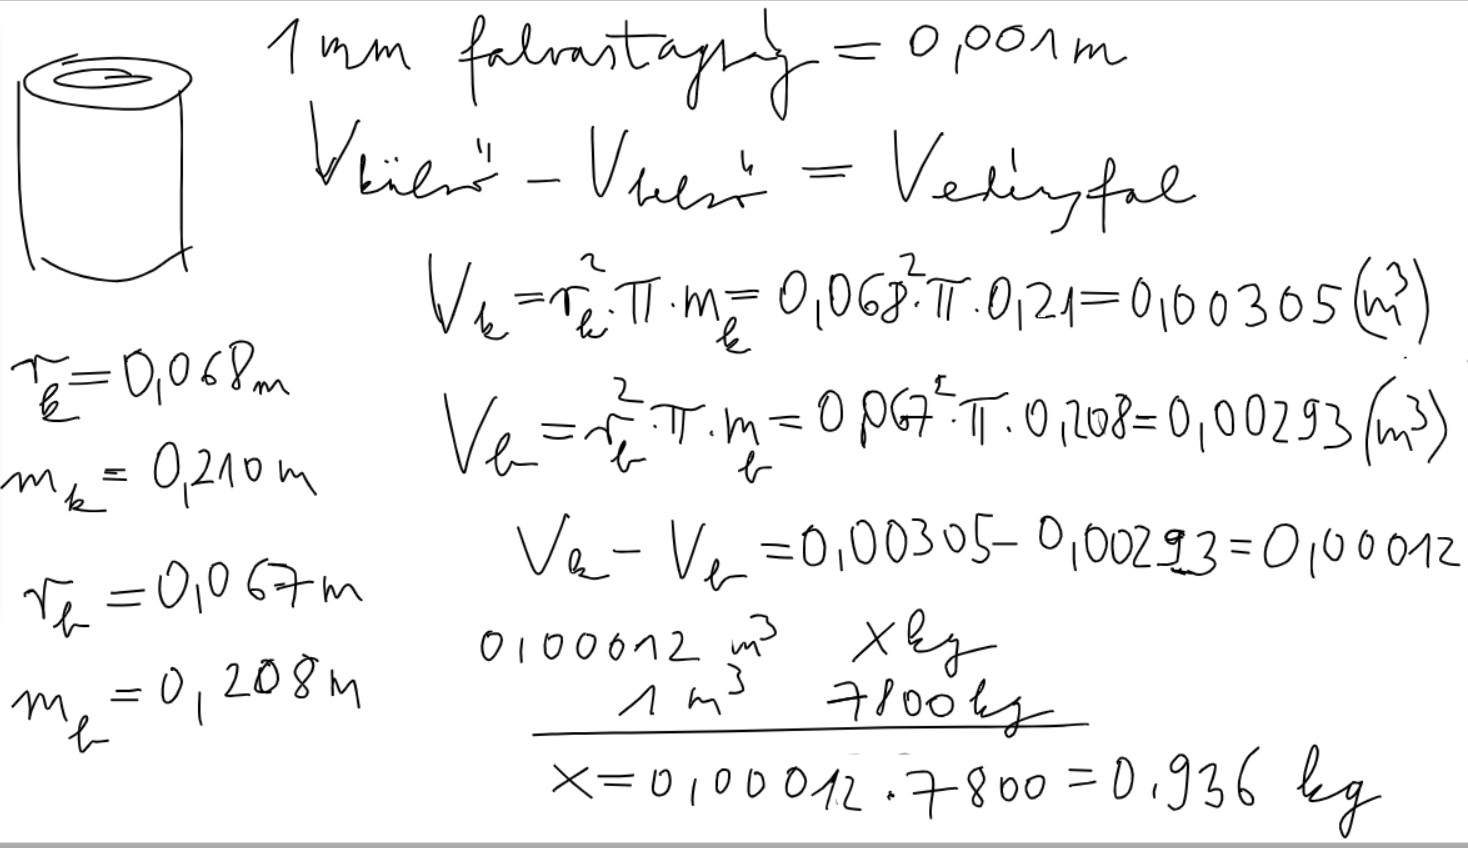 1 mm falvastagság = 0,001 m
Vkülső - Vbelső = Vedényfal
V_k = r_k² · π · m_k = 0,068² · π · 0,21 = 0,00305 (m³)
V_b = r_b² · π · m_b = 0,067² · π · 0,208 = 0,00293 (m³)
V_k - V_b = 0,00305 - 0,00293 = 0,00012
r_k = 0,068 m
m_k = 0,210 m
r_b = 0,067 m
m_b = 0,208 m
0,00012 m³ x kg
1 m³ 7800 kg
x = 0,00012 · 7800 = 0.936 kg